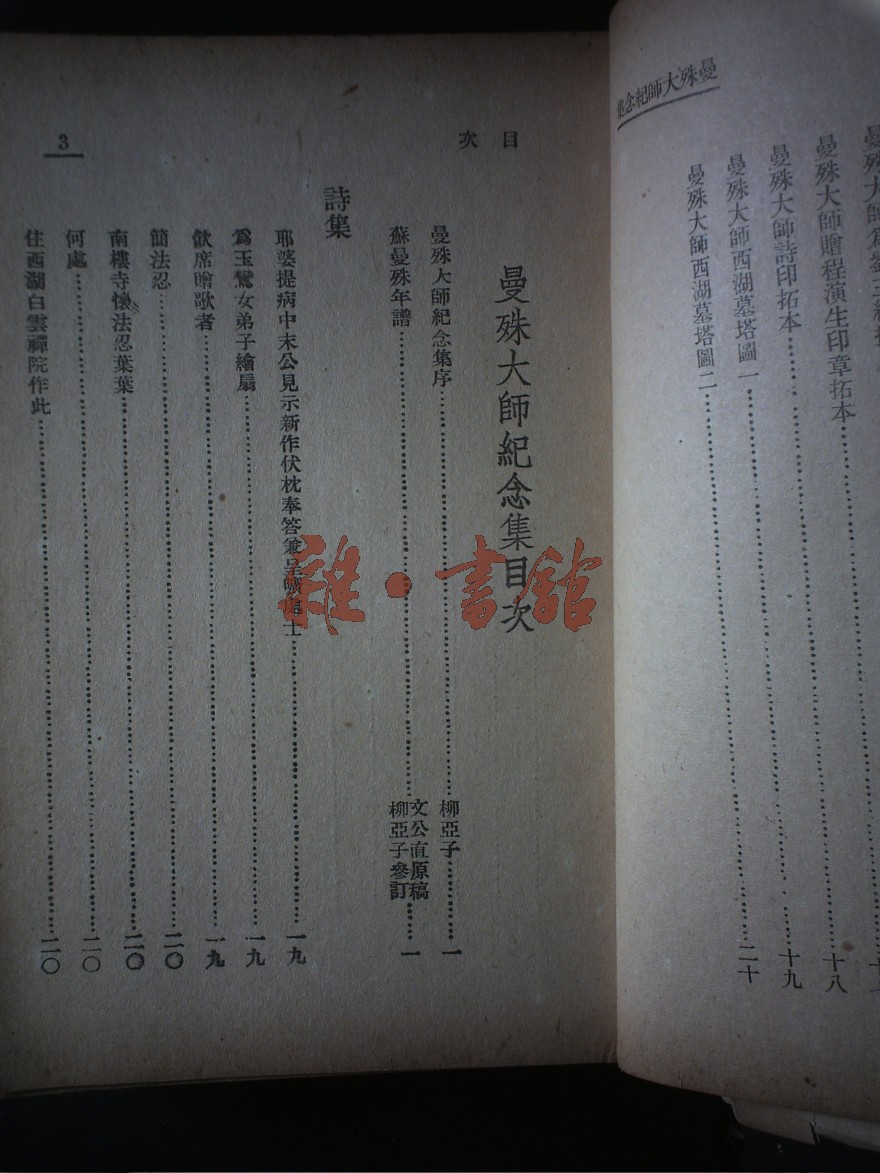 曼殊大師紀念集
曼殊大師贈程演生印章拓本……十八
曼殊大師詩印拓本……十九
曼殊大師西湖墓塔圖一……二十
曼殊大師西湖墓塔圖二……
目次
3
曼殊大師紀念集目次
曼殊大師紀念集序……柳亞子……一
蘇曼殊年譜……文公直原稿 柳亞子參訂……一
詩集
耶婆提病中末公見示新作伏枕奉答兼呈曠處士……一九
爲玉鸞女弟子繪扇……一九
飲席贈歌者……一九
簡法忍……二〇
南樓寺懷法忍葉葉……二〇
何處……二〇
住西湖白雲禪院作此……二〇
雜·書館